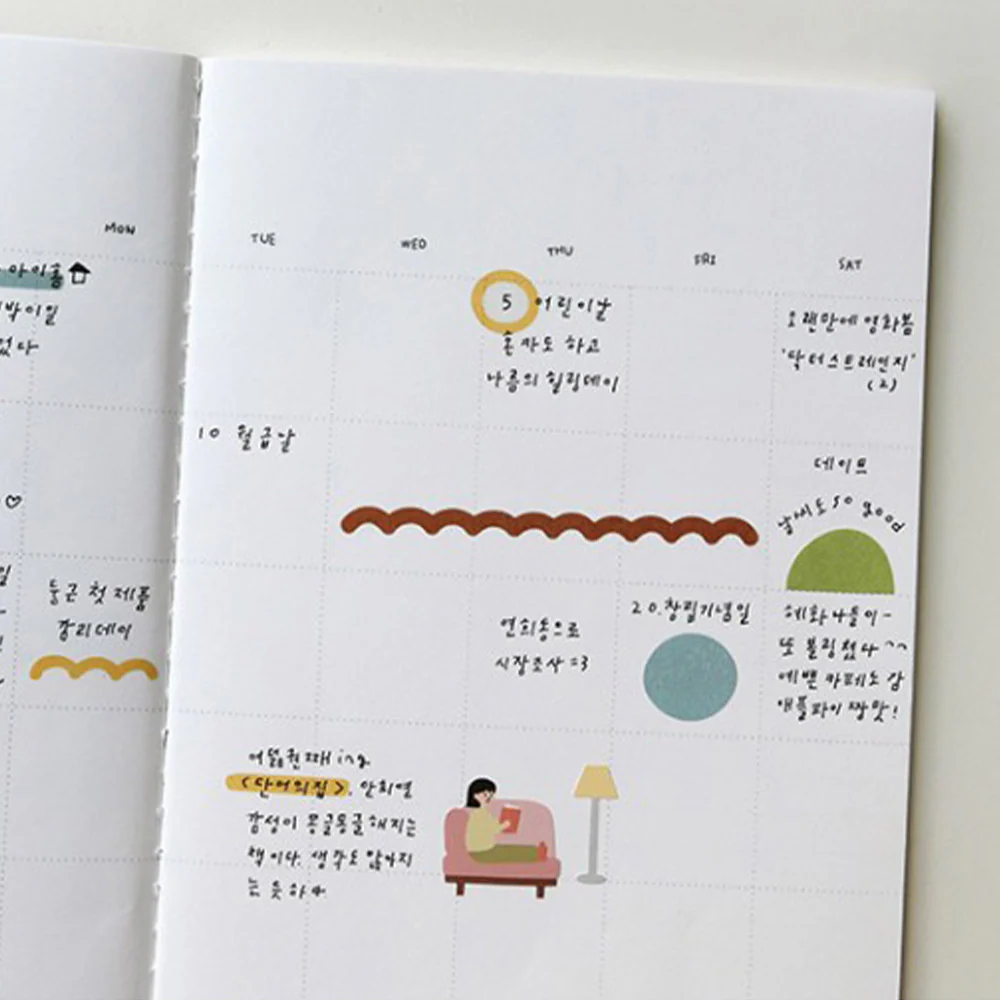 MON
TUE
WED
THU
FRI
SAT
5 어린이날
혼자도 하고
나름의 힐링데이
오랜만에 영화봄
'닥터스트레인지'
(2)
10 월급날
데이트
날씨도 so good
둘근 첫 제품
감리데이
연희동으로
시장조사 =3
20. 창립기념일
혜화나들이~
또 볼링쳤다 ^^
예쁜 카페도 감
애플파이 짱맛!
여덟권째 ing
<단어의집>, 안희연
감성이 몽글몽글해지는
책이다. 생각도 많아지
는 듯하다